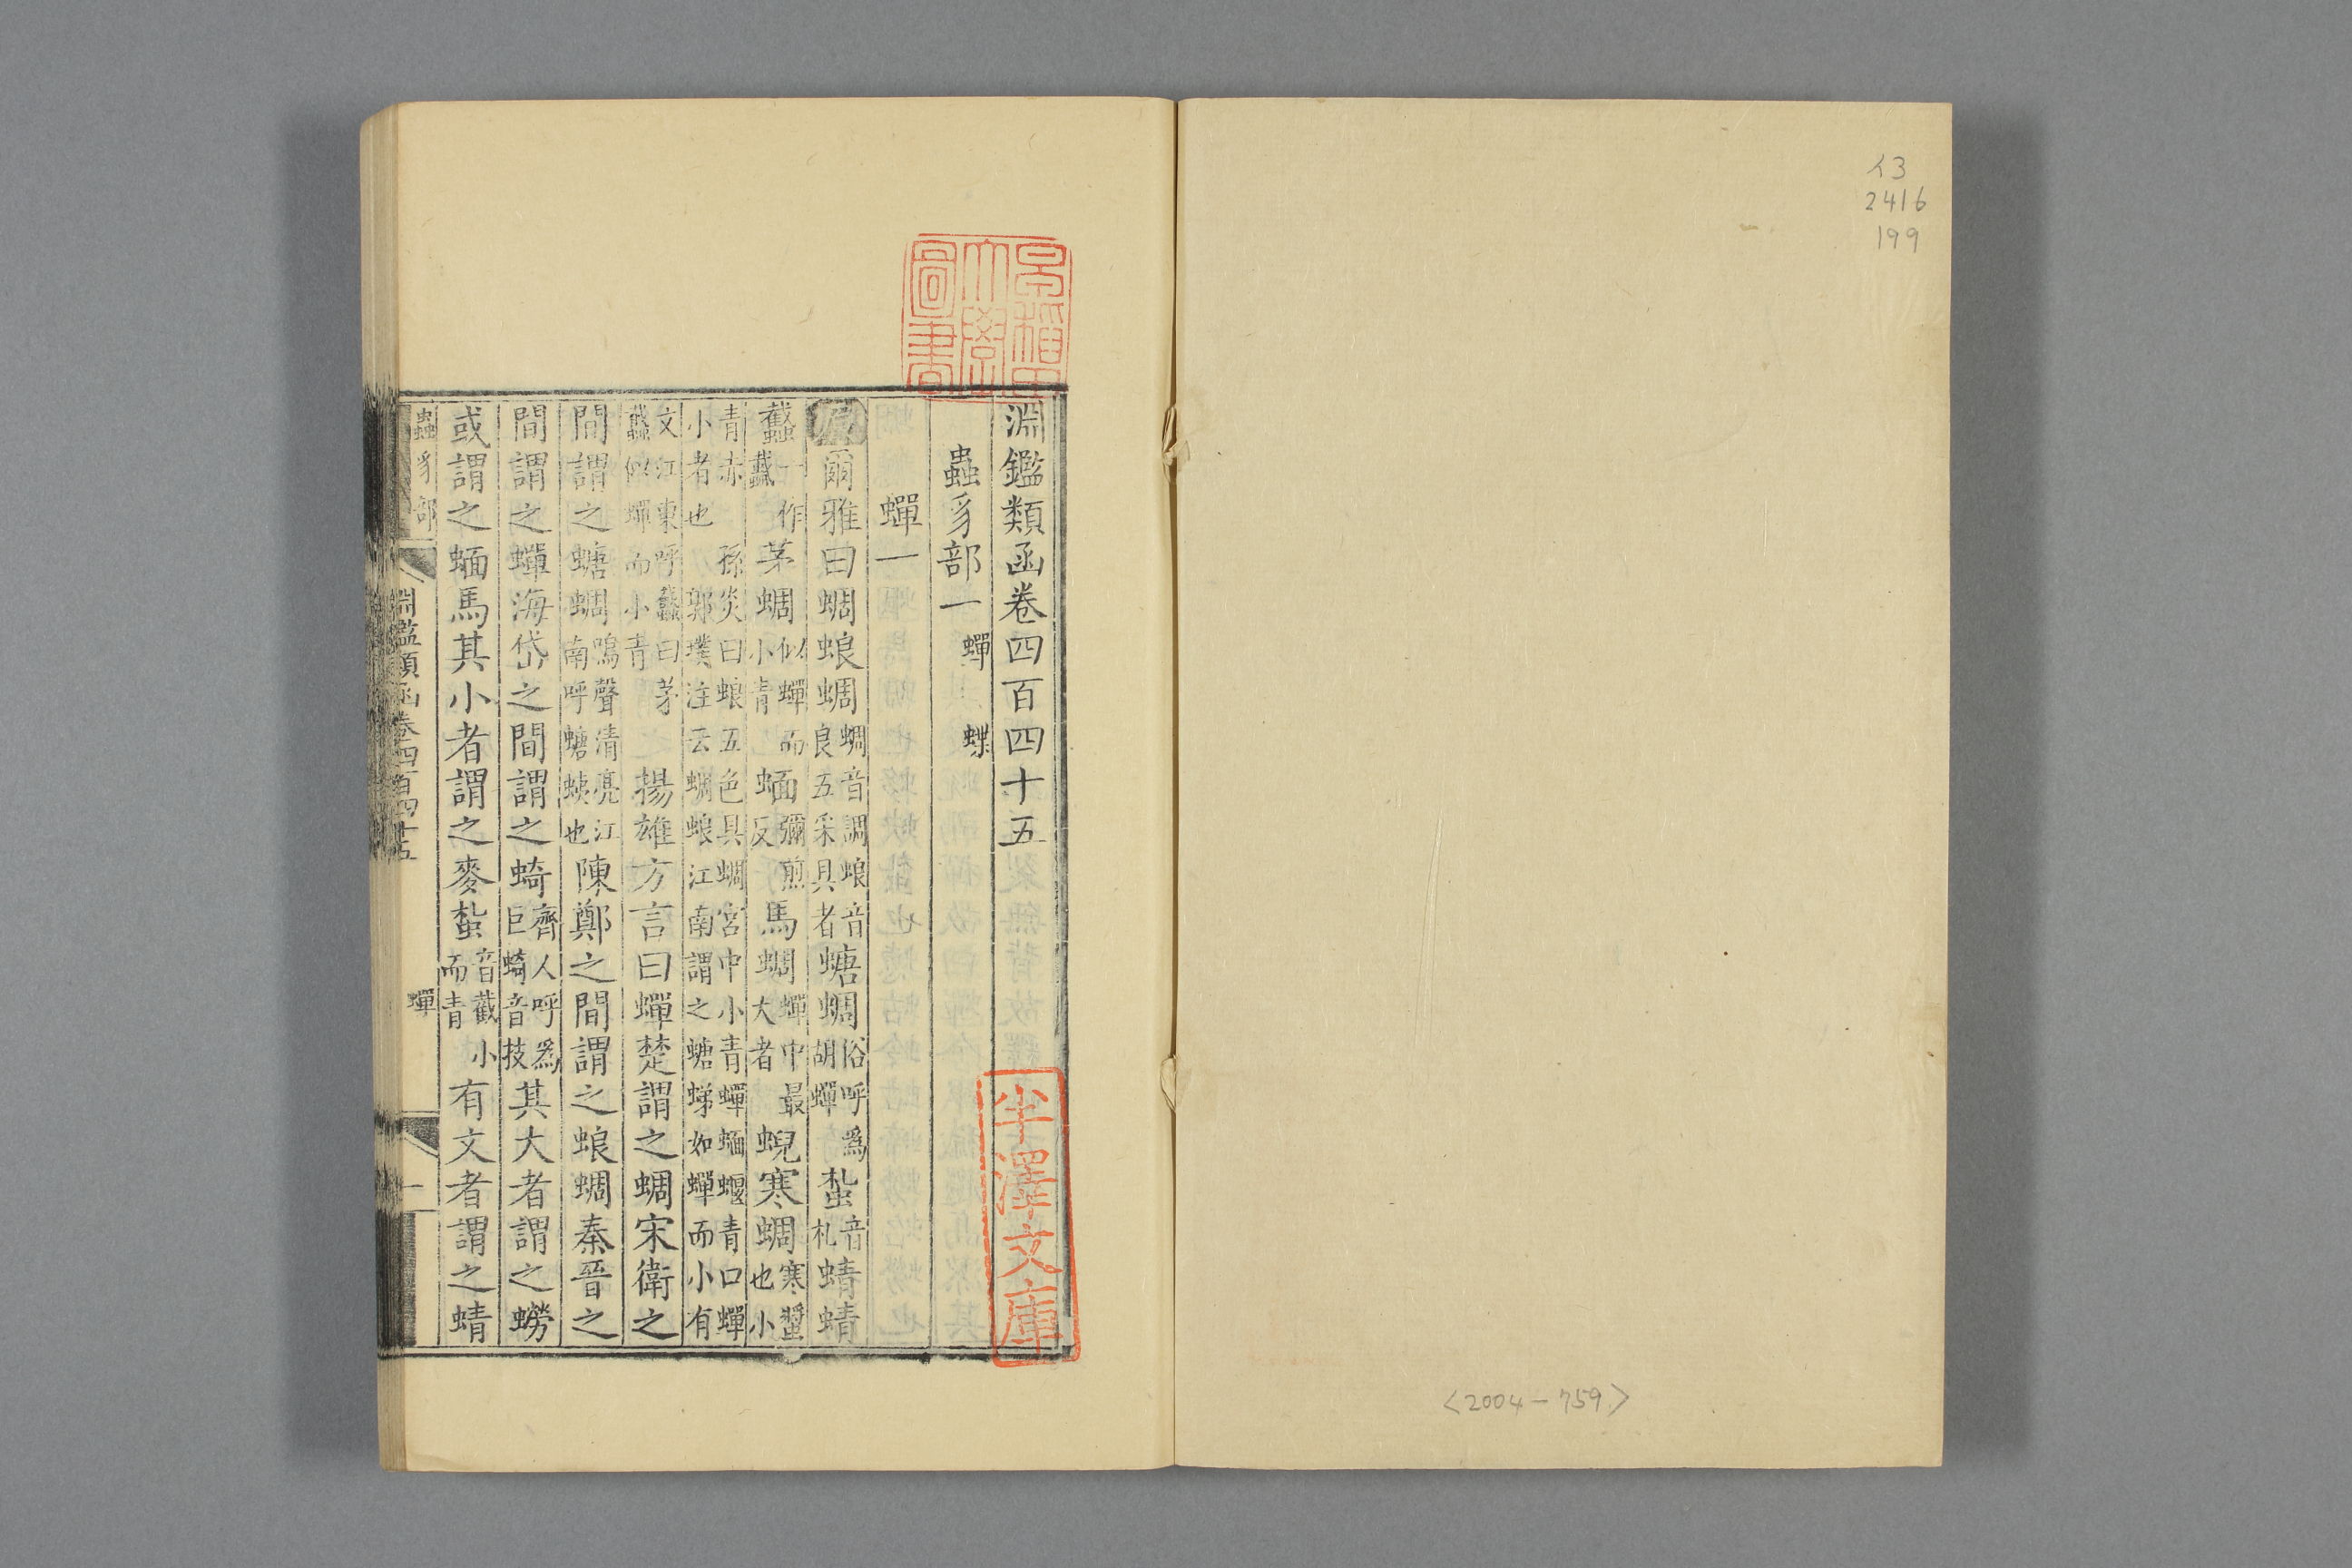 イ3
2416
199
<2004-759>
早稲田大學圖書
半澤文庫
淵鑑類函卷四百四十五
蟲豸部一 蟬 蝶
蟬一
原 爾雅曰蜩蜋蜩 蜩音調蜋音良五采具者 螗蜩 俗呼爲胡蟬 蚻 音札 蜻蜻
蠽 一作蠿 茅蜩 似蟬而小青 蝒 彌煎反 馬蜩 蟬中最大者 蜺寒蜩 寒螿也小
青赤 孫炎曰蜋五色具蜩宮中小青蟬蝒蝘青口蟬
小者也 郭璞注云蜩蜋江南謂之螗蛦如蟬而小有
文江東呼蠽曰茅蠽似蟬而小青 揚雄方言曰蟬楚謂之蜩宋衛之
間謂之螗蜩 鳴聲清亮江南呼螗蛦也 陳鄭之間謂之蜋蜩秦晉之
間謂之蟬海岱之間謂之蛴 齊人呼爲巨蛴音技 其大者謂之蟧
或謂之蝒馬其小者謂之麥蚻 音截小而青 有文者謂之蜻
蟲豸部 淵鑑類函卷四百四十五 蟬 一